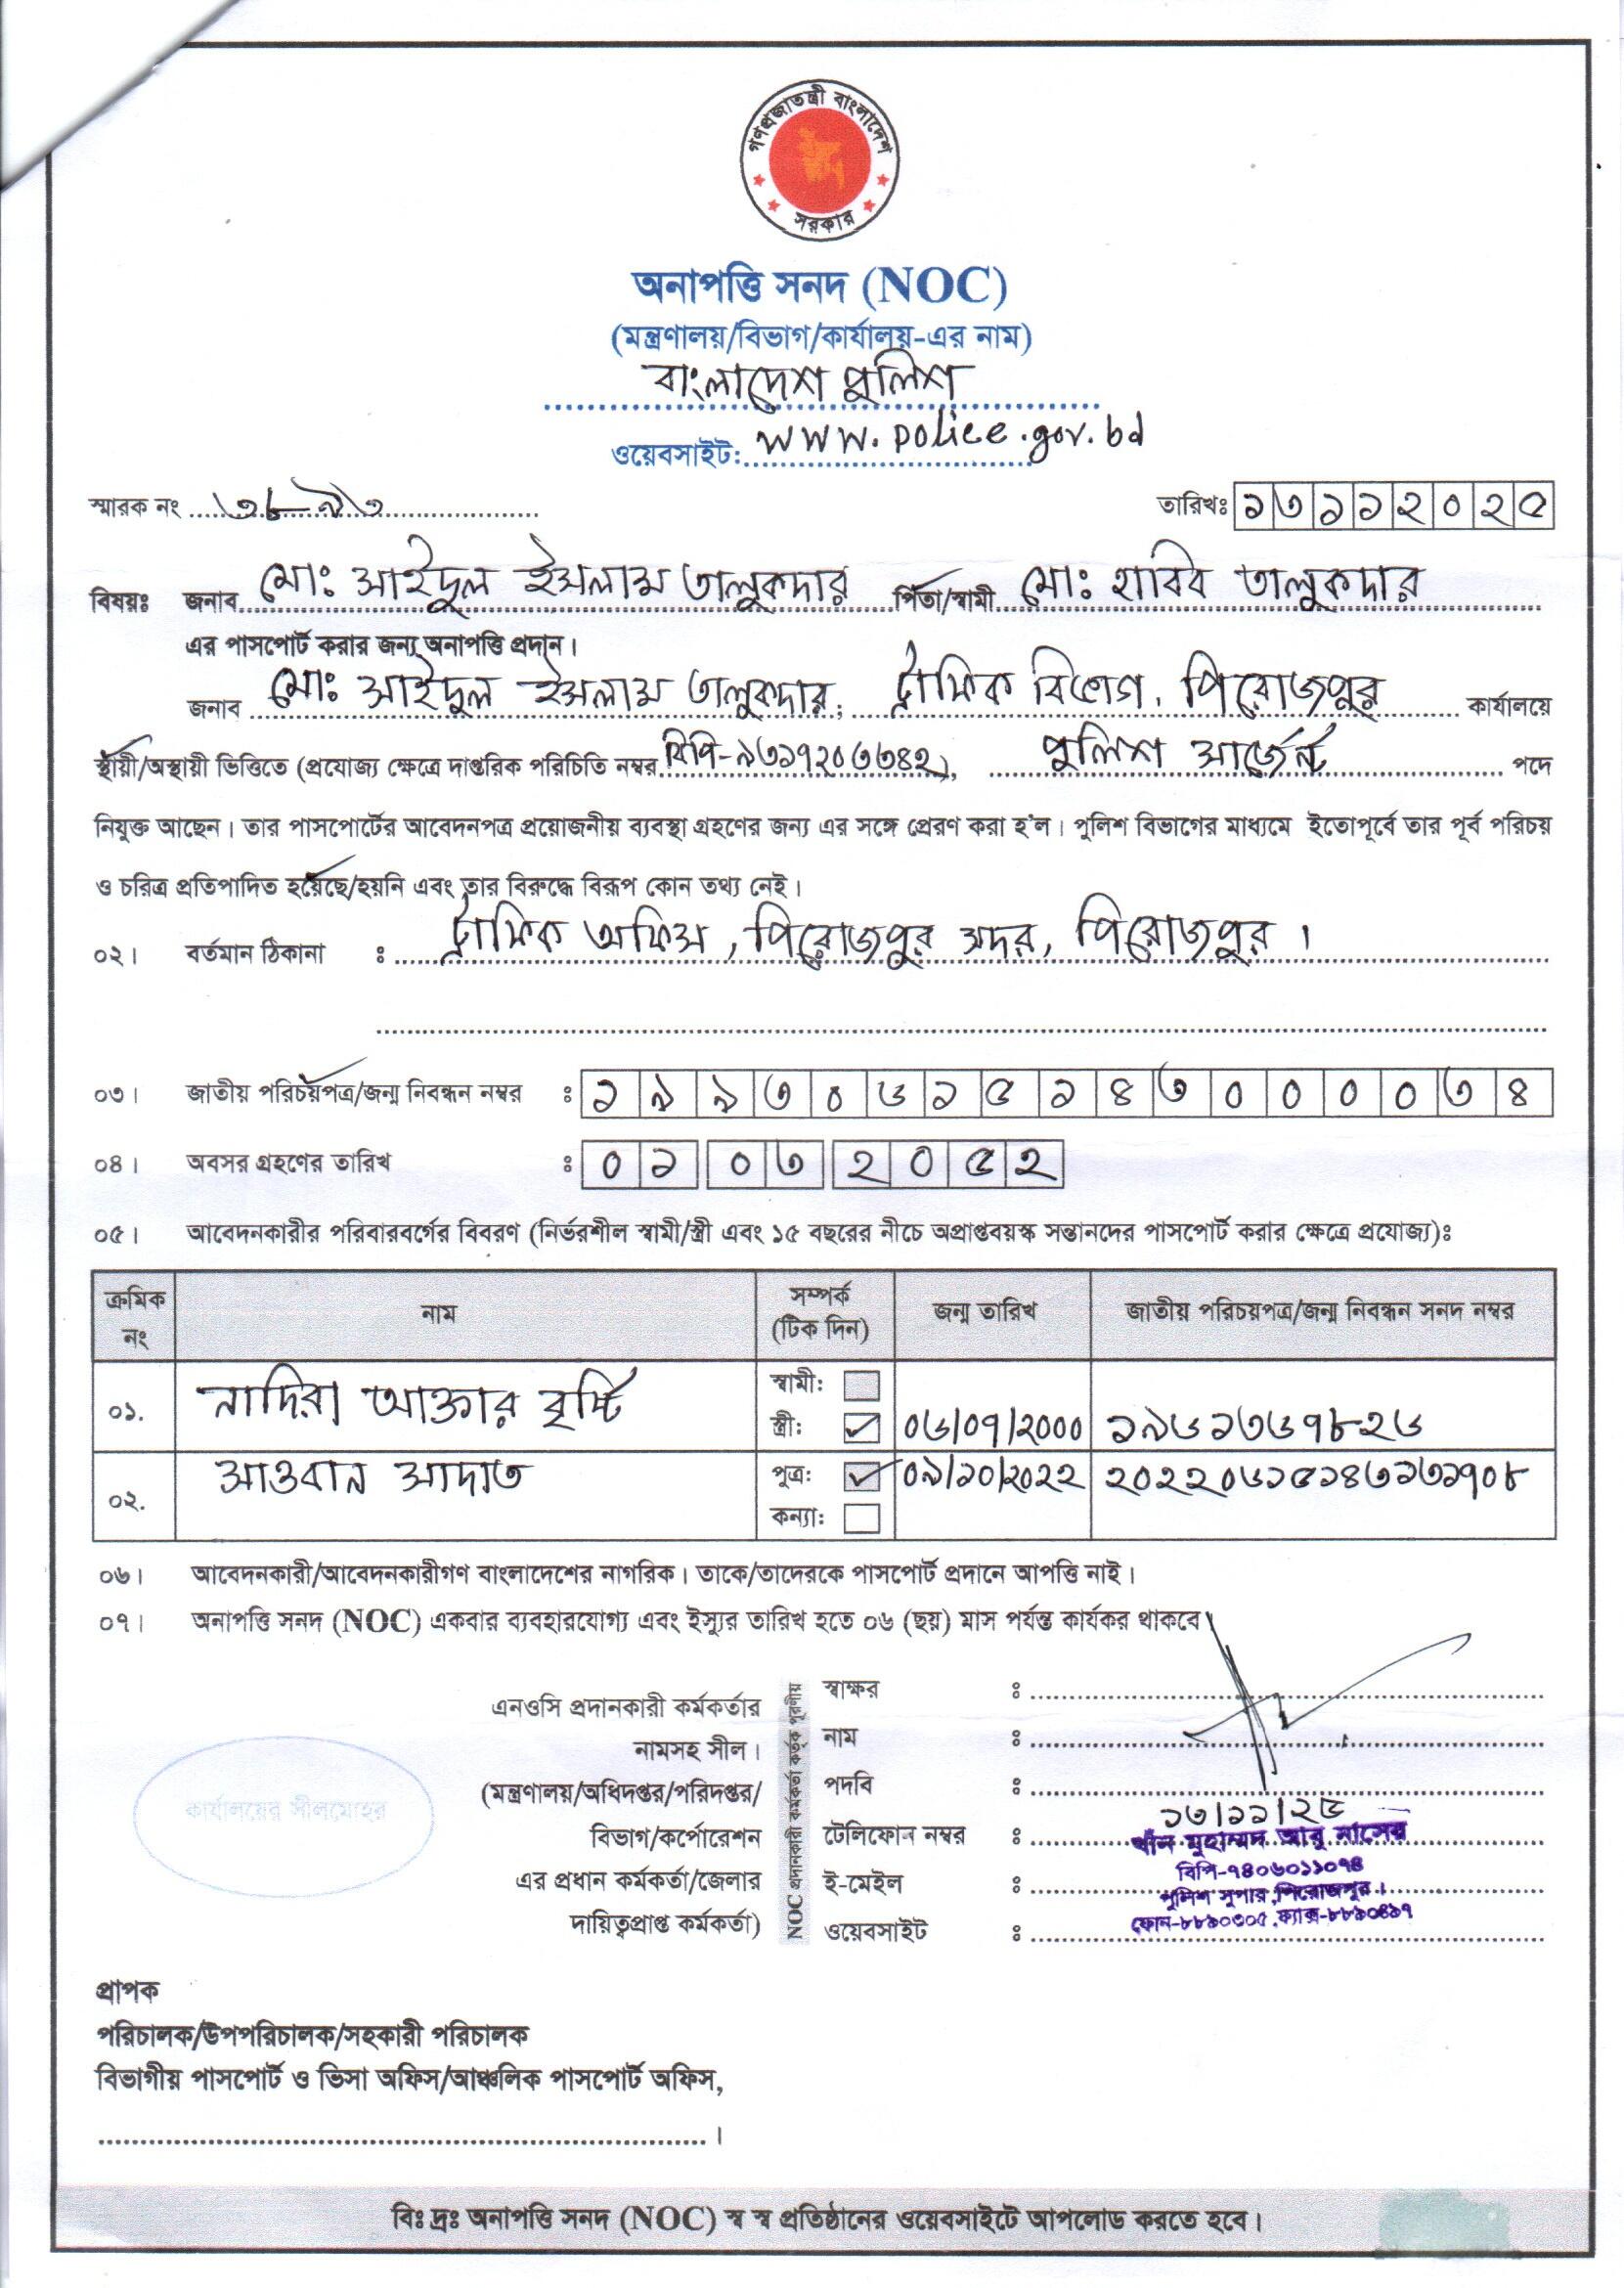 গণপ্রজাতন্ত্রী বাংলাদেশ
সরকার
অনাপত্তি সনদ (NOC)
(মন্ত্রণালয়/বিভাগ/কার্যালয়-এর নাম)
বাংলাদেশ পুলিশ
ওয়েবসাইট: www.police.gov.bd
স্মারক নং ৩৮৯৩ তারিখঃ ১৩১১২০২৫
বিষয়ঃ জনাব মোঃ সাইদুল ইসলাম তালুকদার পিতা/স্বামী মোঃ হাবিব তালুকদার
এর পাসপোর্ট করার জন্য অনাপত্তি প্রদান।
জনাব মোঃ সাইদুল ইসলাম তালুকদার, ট্রাফিক বিভাগ, পিরোজপুর কার্যালয়ে
স্থায়ী/অস্থায়ী ভিত্তিতে (প্রযোজ্য ক্ষেত্রে দাপ্তরিক পরিচিতি নম্বর বিপি-৯৩১৭২০৩৩৪২), পুলিশ সার্জেন্ট পদে
নিযুক্ত আছেন। তার পাসপোর্টের আবেদনপত্র প্রয়োজনীয় ব্যবস্থা গ্রহণের জন্য এর সঙ্গে প্রেরণ করা হ'ল। পুলিশ বিভাগের মাধ্যমে ইতোপূর্বে তার পূর্ব পরিচয়
ও চরিত্র প্রতিপাদিত হয়েছে/হয়নি এবং তার বিরুদ্ধে বিরূপ কোন তথ্য নেই।
০২। বর্তমান ঠিকানা : ট্রাফিক অফিস, পিরোজপুর সদর, পিরোজপুর।
০৩। জাতীয় পরিচয়পত্র/জন্ম নিবন্ধন নম্বর : ১৯৯৩০৬১৫১৪৩০০০০৩৪
০৪। অবসর গ্রহণের তারিখ : ০১ ০৩ ২০৫২
০৫। আবেদনকারীর পরিবারবর্গের বিবরণ (নির্ভরশীল স্বামী/স্ত্রী এবং ১৫ বছরের নীচে অপ্রাপ্তবয়স্ক সন্তানদের পাসপোর্ট করার ক্ষেত্রে প্রযোজ্য)ঃ
ক্রমিক নং নাম সম্পর্ক (টিক দিন) জন্ম তারিখ জাতীয় পরিচয়পত্র/জন্ম নিবন্ধন সনদ নম্বর
স্বামী:
০১. নাদিরা আক্তার বৃষ্টি স্ত্রী: ✓ ০৬/০৭/২০০০ ১৯৬১৩৬৭৮২৬
০২. সাওবান সাদাত পুত্র: ✓ ০৯/১০/২০২২ ২০২২০৬১৫১৪৩১৩১৭০৮
কন্যা:
০৬। আবেদনকারী/আবেদনকারীগণ বাংলাদেশের নাগরিক। তাকে/তাদেরকে পাসপোর্ট প্রদানে আপত্তি নাই।
০৭। অনাপত্তি সনদ (NOC) একবার ব্যবহারযোগ্য এবং ইস্যুর তারিখ হতে ০৬ (ছয়) মাস পর্যন্ত কার্যকর থাকবে।
এনওসি প্রদানকারী কর্মকর্তার
নামসহ সীল।
(মন্ত্রণালয়/অধিদপ্তর/পরিদপ্তর/
বিভাগ/কর্পোরেশন
এর প্রধান কর্মকর্তা/জেলার
দায়িত্বপ্রাপ্ত কর্মকর্তা)
কার্যালয়ের সীলমোহর
NOC প্রদানকারী কর্মকর্তা কর্তৃক পূরণীয়
স্বাক্ষর :
নাম :
পদবি :
১৩/১১/২৫
টেলিফোন নম্বর : খাঁন মুহাম্মদ আবু নাসের
বিপি-৭৪০৬০১১০৭৪
ই-মেইল : পুলিশ সুপার, পিরোজপুর।
ফোন-৮৮৯০৩০৫, ফ্যাক্স-৮৮৯০৪৯৭
ওয়েবসাইট :
প্রাপক
পরিচালক/উপপরিচালক/সহকারী পরিচালক
বিভাগীয় পাসপোর্ট ও ভিসা অফিস/আঞ্চলিক পাসপোর্ট অফিস,
।
বিঃ দ্রঃ অনাপত্তি সনদ (NOC) স্ব স্ব প্রতিষ্ঠানের ওয়েবসাইটে আপলোড করতে হবে।